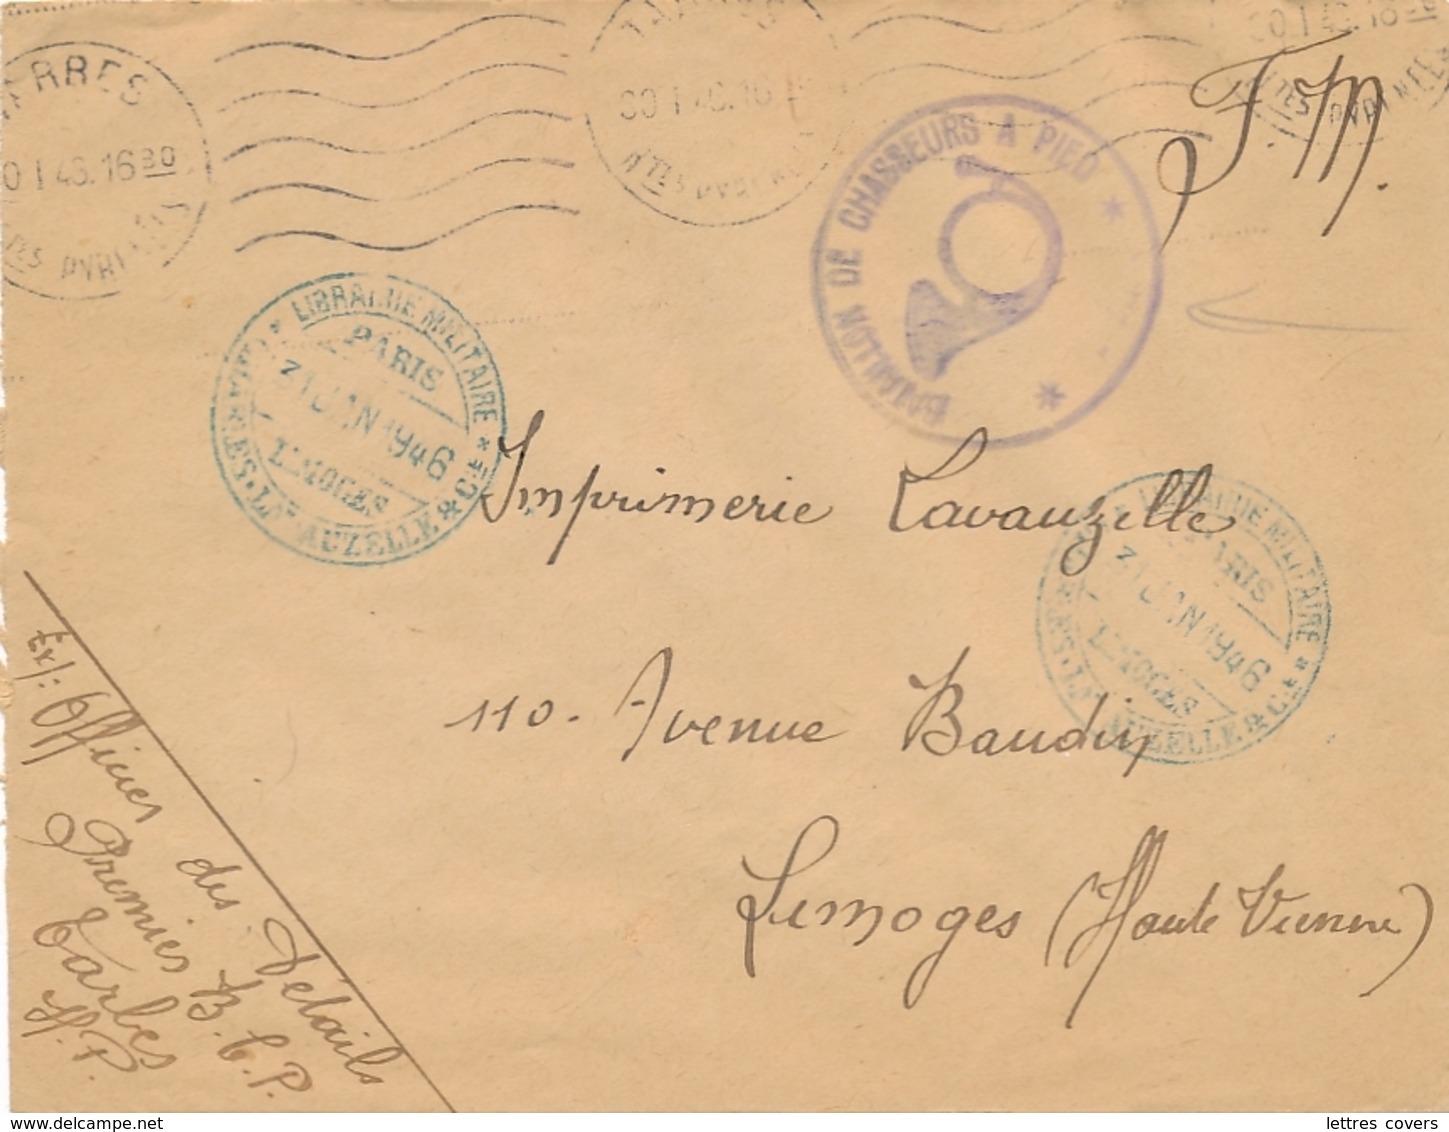 TARBES
30 I 46. 16 30
HTES PYRENEES
30 I 46. 16
HTES PYRENEES
30 I 46. 16 30
HTES PYRENEES
F. M.
BATAILLON DE CHASSEURS A PIED * *
* LIBRAIRIE MILITAIRE *
PARIS
31 JAN 1946
LIMOGES
CHARLES-LAVAUZELLE & Cie
Imprimerie Lavauzelle
LIBRAIRIE MILITAIRE *
PARIS
31 JAN 1946
LIMOGES
CHARLES-LAVAUZELLE & Cie
110. Avenue Baudin
Limoges (Haute Vienne)
Ex/: Officier des Détails
Premier B.C.P.
Tarbes
H.P.
lettres covers